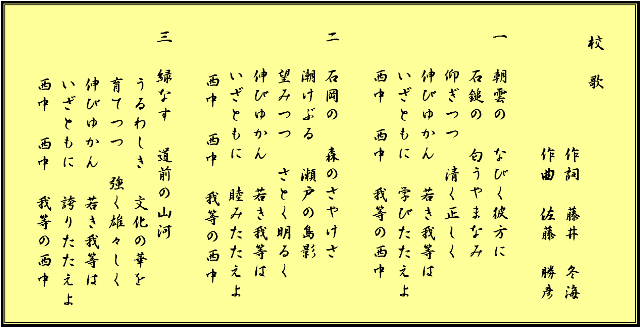 校歌
作詞 藤井 冬海
作曲 佐藤 勝彦
一 朝雲の なびく彼方に
石鎚の 匂うやまなみ
仰ぎつつ 清く正しく
伸びゆかん 若き我等は
いざともに 学びたたえよ
西中 西中 我等の西中
二 石岡の 森のさやけさ
潮けぶる 瀬戸の島影
望みつつ さとく明るく
伸びゆかん 若き我等は
いざともに 睦みたたえよ
西中 西中 我等の西中
三 緑なす 道前の山河
うるわしき 文化の華を
育てつつ 強く雄々しく
伸びゆかん 若き我等は
いざともに 誇りたたえよ
西中 西中 我等の西中